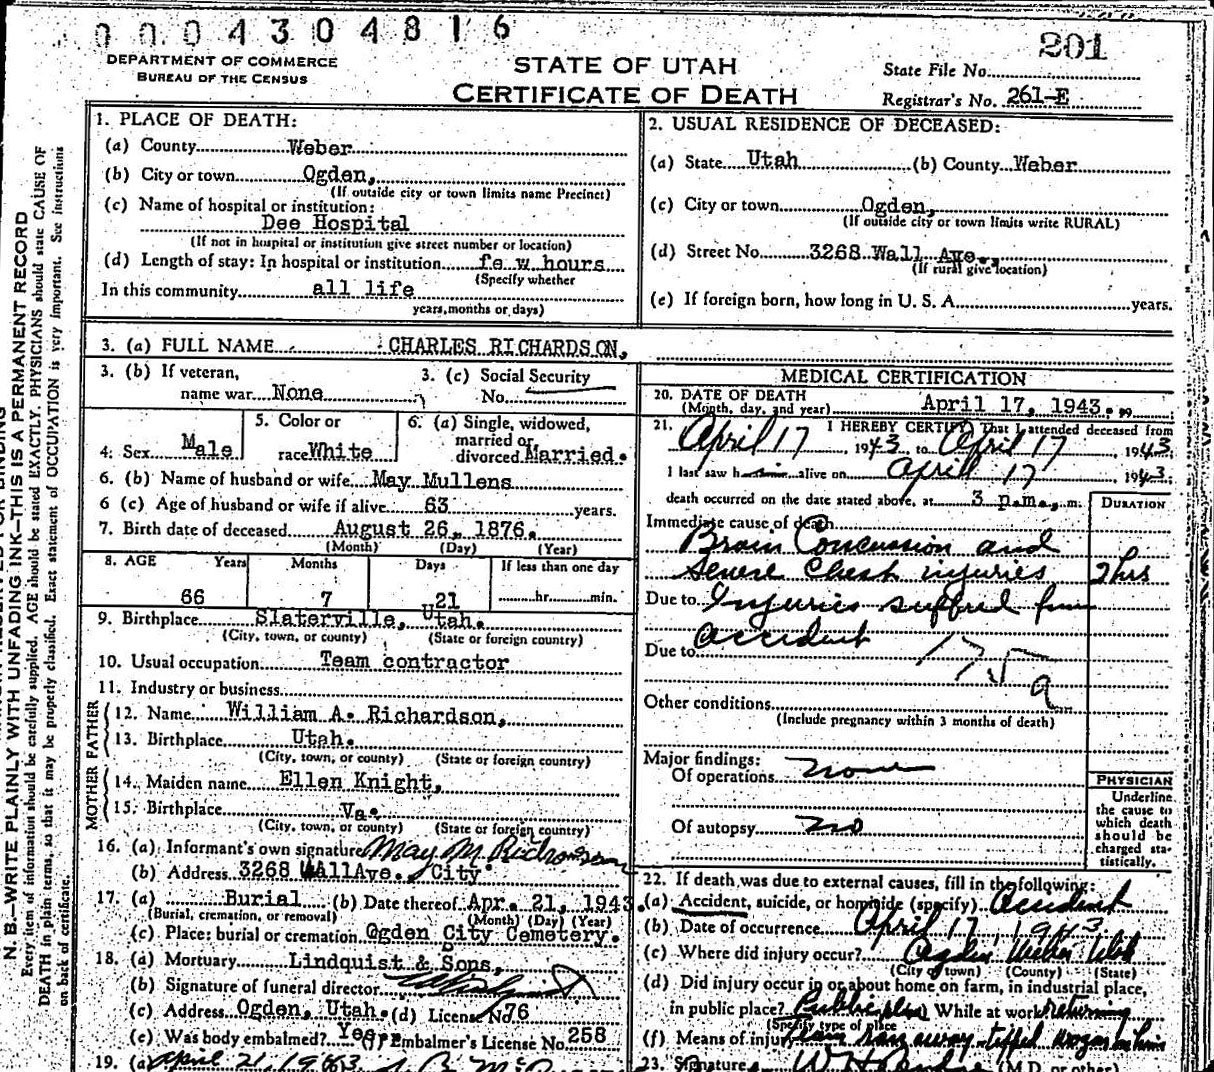 0 0 0 4 3 0 4 8 1 6
201
DEPARTMENT OF COMMERCE
BUREAU OF THE CENSUS
STATE OF UTAH
CERTIFICATE OF DEATH
State File No.
Registrar's No. 261-E
N. B.—WRITE PLAINLY WITH UNFADING INK—THIS IS A PERMANENT RECORD
Every item of information should be carefully supplied. AGE should be stated EXACTLY. PHYSICIANS should state CAUSE OF
DEATH in plain terms, so that it may be properly classified. Exact statement of OCCUPATION is very important. See instructions
on back of certificate.
1. PLACE OF DEATH:
(a) County Weber
(b) City or town Ogden,
(If outside city or town limits name Precinct)
(c) Name of hospital or institution:
Dee Hospital
(If not in hospital or institution give street number or location)
(d) Length of stay: In hospital or institution few hours
(Specify whether
In this community all life
years, months or days)
2. USUAL RESIDENCE OF DECEASED:
(a) State Utah (b) County Weber
(c) City or town Ogden,
(If outside city or town limits write RURAL)
(d) Street No. 3268 Wall Ave.,
(If rural give location)
(e) If foreign born, how long in U. S. A. years.
3. (a) FULL NAME CHARLES RICHARDSON,
3. (b) If veteran,
name war None
3. (c) Social Security
No.
4. Sex Male
5. Color or
race White
6. (a) Single, widowed,
married or
divorced Married.
6. (b) Name of husband or wife May Mullens
6 (c) Age of husband or wife if alive 63 years.
7. Birth date of deceased August 26, 1876.
(Month) (Day) (Year)
8. AGE Years Months Days If less than one day
66 7 21 hr. min.
9. Birthplace Slaterville, Utah.
(City, town, or county) (State or foreign country)
10. Usual occupation Team contractor
11. Industry or business
FATHER
12. Name William A. Richardson,
13. Birthplace Utah.
(City, town, or county) (State or foreign country)
MOTHER
14. Maiden name Ellen Knight,
15. Birthplace Va.
(City, town, or county) (State or foreign country)
16. (a) Informant's own signature May M Richardson
(b) Address 3268 WAllAve. City
17. (a) Burial (b) Date thereof Apr. 21, 1943.
(Burial, cremation, or removal) (Month) (Day) (Year)
(c) Place: burial or cremation Ogden City Cemetery.
18. (a) Mortuary Lindquist & Sons,
(b) Signature of funeral director
(c) Address Ogden, Utah. (d) License No. 76
(e) Was body embalmed? Yes (f) Embalmer's License No. 258
19. (a) April 21, 1943
MEDICAL CERTIFICATION
20. DATE OF DEATH
(Month, day, and year) April 17, 1943.
21. I HEREBY CERTIFY That I attended deceased from
April 17, 1943 to April 17, 1943
I last saw h im alive on April 17 1943
death occurred on the date stated above, at 3 p.m., m.
DURATION
Immediate cause of death
Brain Concussion and
Severe Chest injuries 2 hrs
Due to Injuries suffred from
accident
Due to
175a
Other conditions
(Include pregnancy within 3 months of death)
Major findings:
Of operations none
Of autopsy no
PHYSICIAN
Underline
the cause to
which death
should be
charged sta-
tistically.
22. If death was due to external causes, fill in the following:
(a) Accident, suicide, or homicide (specify) Accident
(b) Date of occurrence April 17, 1943
(c) Where did injury occur? Ogden Weber Utah
(City or town) (County) (State)
(d) Did injury occur in or about home on farm, in industrial place,
in public place? Public place While at work returning
(Specify type of place
(f) Means of injury Team ran away tipped wagon on him
23. Signature (M.D. or other)